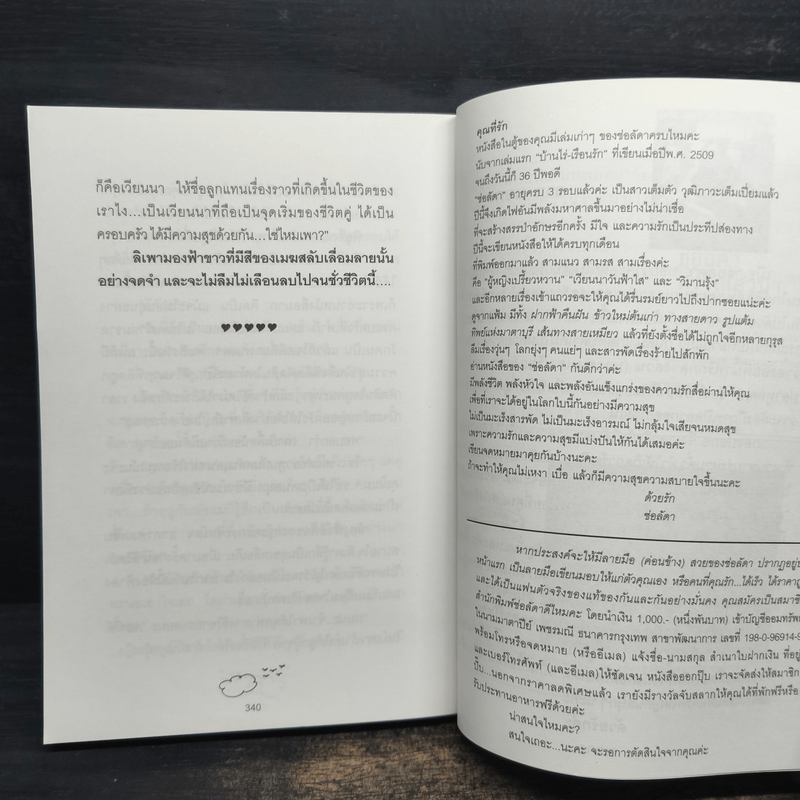 ก็คือเวียนนา ให้ชื่อลูกแทนเรื่องราวที่เกิดขึ้นในชีวิตของ
เราไง...เป็นเวียนนาที่ถือเป็นจุดเริ่มของชีวิตคู่ ได้เป็น
ครอบครัว ได้มีความสุขด้วยกัน...ใช่ไหมเพา?"
ลิเพามองฟ้าขาวที่มีสีของเมฆสลับเลื่อมลายนั้น
อย่างจดจำ และจะไม่ลืมไม่เลือนลบไปจนชั่วชีวิตนี้....
♥♥♥♥♥
340
คุณที่รัก
หนังสือในตู้ของคุณมีเล่มเก่าๆ ของช่อลัดาครบไหมคะ
นับจากเล่มแรก "บ้านไร่-เรือนรัก" ที่เขียนเมื่อปีพ.ศ. 2509
จนถึงวันนี้ก็ 36 ปีพอดี
"ช่อลัดา" อายุครบ 3 รอบแล้วค่ะ เป็นสาวเต็มตัว วุฒิภาวะเต็มเปี่ยมแล้ว
ปีนี้จึงเกิดไฟอันมีพลังมหาศาลขึ้นมาอย่างไม่น่าเชื่อ
ที่จะสร้างสรรปำอักษรอีกครั้ง มีใจ และความรักเป็นประทีปส่องทาง
ปีนี้จะเขียนหนังสือให้ได้ครบทุกเดือน
ที่พิมพ์ออกมาแล้ว สามแนว สามรส สามเรื่องค่ะ
คือ "ผู้หญิงเปรี้ยวหวาน" "เวียนนาวันฟ้าใส" และ "วิมานรุ้ง"
และอีกหลายเรื่องเข้าแถวรอจะให้คุณได้รื่นรมย์ยาวไปถึงปากซอยแน่ะค่ะ
ดูจากแฟ้ม มีทั้ง ฝากฟ้าคืนฝัน ข้าวใหม่ต้นเก่า ทางสายดาว รูปแต้ม
ทิพย์แห่งมาตาบุรี เส้นทางสายเหมียว แล้วที่ยังตั้งชื่อได้ไม่ถูกใจอีกหลายกุรุส
ลืมเรื่องวุ่นๆ โลกยุ่งๆ คนแย่ๆ และสารพัดเรื่องร้ายไปสักพัก
อ่านหนังสือของ "ช่อลัดา" กันดีกว่าค่ะ
มีพลังชีวิต พลังหัวใจ และพลังอันแข็งแกร่งของความรักสื่อผ่านให้คุณ
เพื่อที่เราจะได้อยู่ในโลกใบนี้กันอย่างมีความสุข
ไม่เป็นมะเร็งสารพัด ไม่เป็นมะเร็งอารมณ์ ไม่กลุ้มใจเสียจนหมดสุข
เพราะความรักและความสุขมีแบ่งปันให้กันได้เสมอค่ะ
เขียนจดหมายมาคุยกันบ้างนะคะ
ถ้าจะทำให้คุณไม่เหงา เบื่อ แล้วก็มีความสุขความสบายใจขึ้นนะคะ
ด้วยรัก
ช่อลัดา
หากประสงค์จะให้มีลายมือ (ค่อนข้าง) สวยของช่อลัดา ปรากฏอยู่
หน้าแรก เป็นลายมือเขียนมอบให้แก่ตัวคุณเอง หรือคนที่คุณรัก...ได้เร็ว ได้ราคาถูก
และได้เป็นแฟนตัวจริงของแท้ของกันและกันอย่างมั่นคง คุณสมัครเป็นสมาชิก
สำนักพิมพ์ช่อลัดาดีไหมคะ โดยนำเงิน 1,000.- (หนึ่งพันบาท) เข้าบัญชีออมทรัพย์
ในนามมาตาปีย์ เพชรมณี ธนาคารกรุงเทพ สาขาพัฒนาการ เลขที่ 198-0-96914-9
พร้อมโทรหรือจดหมาย (หรืออีเมล) แจ้งชื่อ-นามสกุล สำเนาใบฝากเงิน ที่อยู่
และเบอร์โทรศัพท์ (และอีเมล)ให้ชัดเจน หนังสือออกปุ๊บ เราจะจัดส่งให้สมาชิก
ปั๊บ...นอกจากราคาลดพิเศษแล้ว เรายังมีรางวัลจับสลากให้คุณได้ที่พักฟรีหรือ
รับประทานอาหารฟรีด้วยค่ะ
น่าสนใจไหมคะ?
สนใจเถอะ...นะคะ จะรอการตัดสินใจจากคุณค่ะ